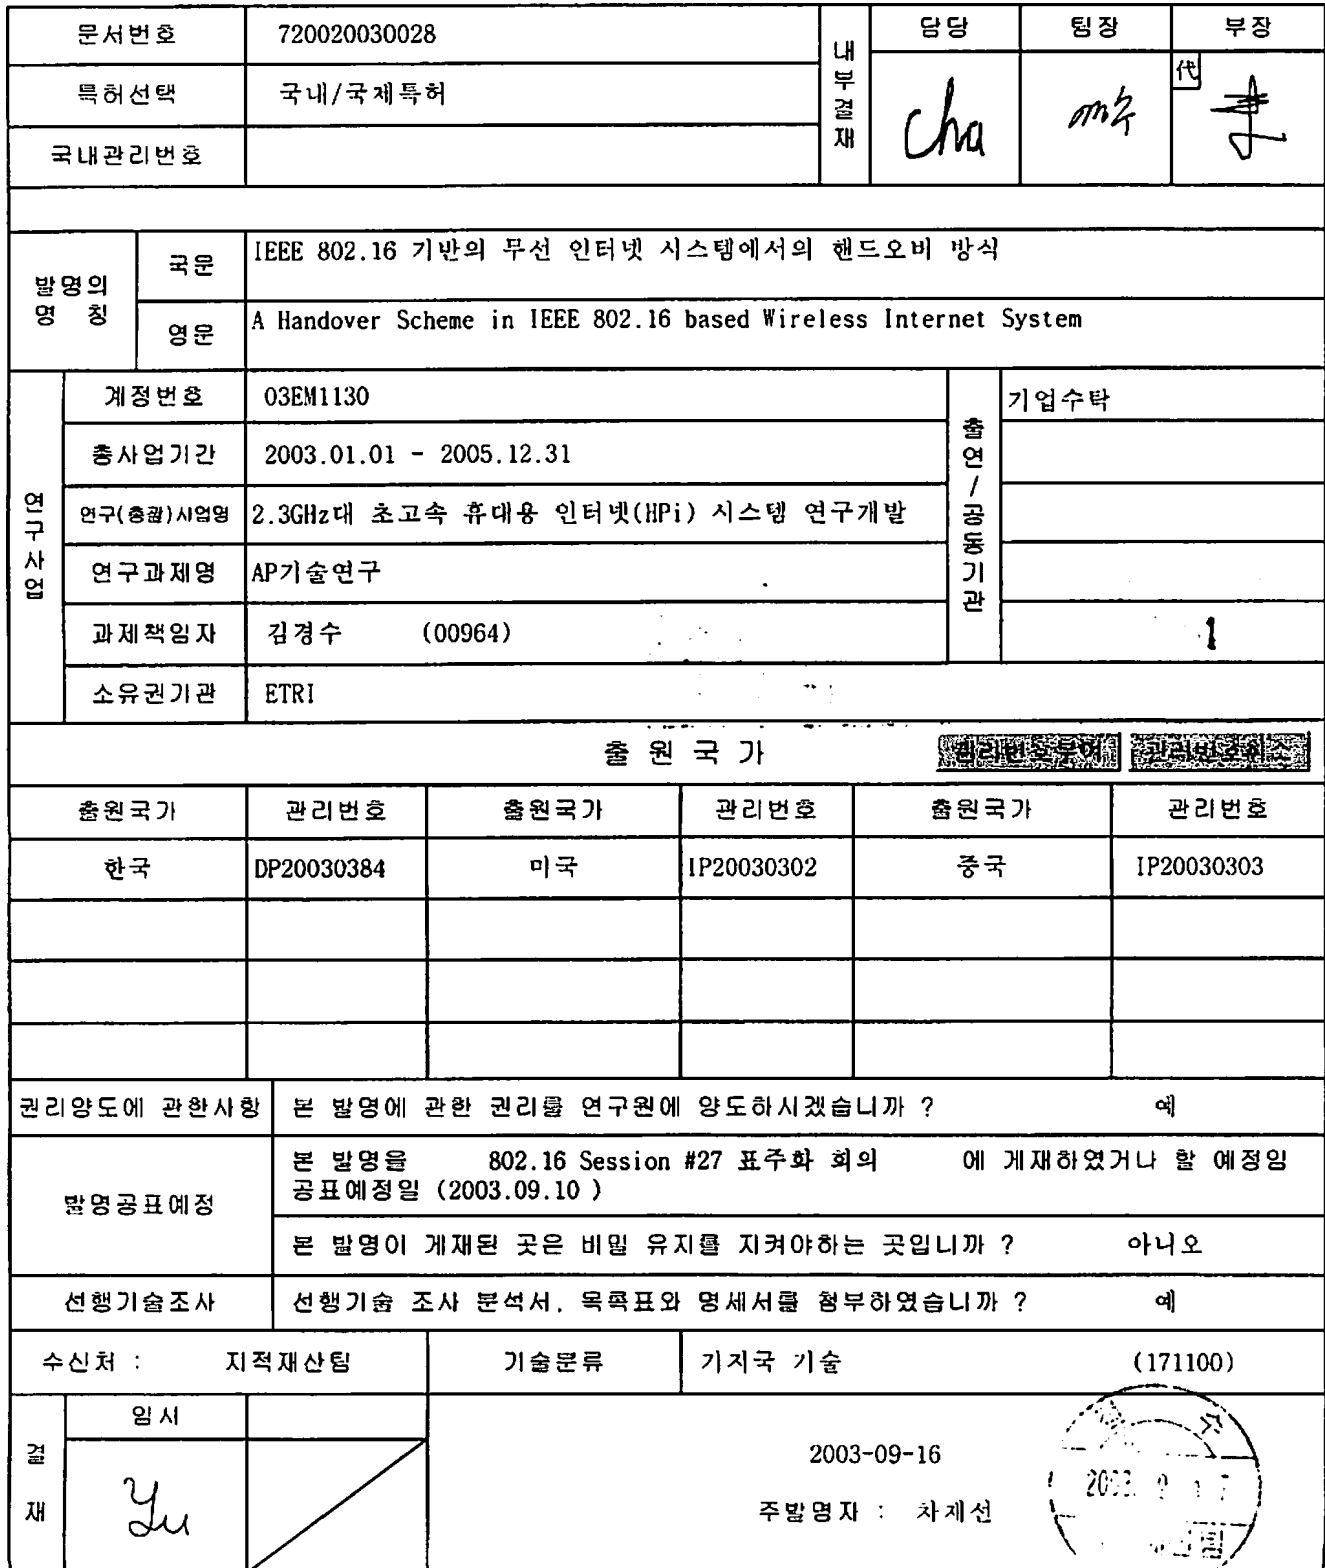 문서번호 720020030028 내부결재 담당 팀장 부장
특허선택 국내/국제특허 cha 代
국내관리번호
발명의 명 칭 국문 IEEE 802.16 기반의 무선 인터넷 시스템에서의 핸드오버 방식
영문 A Handover Scheme in IEEE 802.16 based Wireless Internet System
연구사업 계정번호 03EM1130 출연/공동기관 기업수탁
총사업기간 2003.01.01 - 2005.12.31
연구(총괄)사업명 2.3GHz대 초고속 휴대용 인터넷(HPi) 시스템 연구개발
연구과제명 AP기술연구
과제책임자 김경수 (00964) 1
소유권기관 ETRI
출 원 국 가 관리번호부여 관리번호취소
출원국가 관리번호 출원국가 관리번호 출원국가 관리번호
한국 DP20030384 미국 IP20030302 중국 IP20030303
권리양도에 관한사항 본 발명에 관한 권리를 연구원에 양도하시겠습니까 ? 예
발명공표예정 본 발명을 802.16 Session #27 표주화 회의 에 게재하였거나 할 예정임
공표예정일 (2003.09.10 )
본 발명이 게재된 곳은 비밀 유지를 지켜야하는 곳입니까 ? 아니오
선행기술조사 선행기술 조사 분석서, 목록표와 명세서를 첨부하였습니까 ? 예
수신처 : 지적재산팀 기술분류 기지국 기술 (171100)
결재 임시
Yu
2003-09-16
주발명자 : 차재선